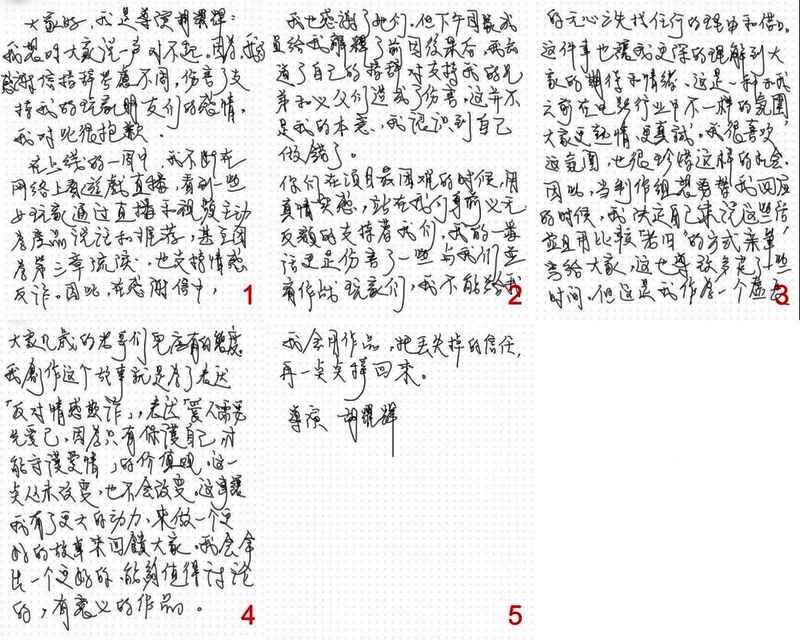 大家好，我是導演胡耀輝：
我想對大家說一声对不起，因為我的
感謝信措辞考慮不周，伤害了支
持我的玩家朋友们的感情，
我对此很抱歉。
在上线的一周中，我不断在
网络上看遊戲直播，看到一些
女玩家通过直播和视频主动
為產品说话和推荐，甚至因
為第三章流淚，也支持情感
反诈。因此，在感謝信中，
1
我也感謝了她们。但下午團隊成
員给我解释了前因後果后，我知
道了自己的措辞对支持我的兄
弟和义父们造成了伤害，这并不
是我的本意，我認识到自己
做错了。
你们在項目最困难的时候，用
真情实感，站在我们身前义无
反顧的支持着我们。我的一番
话更是伤害了一些与我们並
肩作战玩家们，我不能给我
2
的无心之失找任何的理由和借口。
这件事也讓我更深的理解到大
家的期待和情绪。这是一种和我
之前在电影行业中不一样的氛圍
大家更熱情，更真誠，我很喜欢
这氛圍，也很珍惜这样的机会。
因此，当制作组想要帮我回应
的时候，我决定自己来说这些话
並且用比較“老旧”的方式来
寫给大家，这也導致多花了一些
时间，但这是我作為一个虚长
3
大家几歲的老哥们更应有的態度
我創作这个故事就是為了表达
“反对情感欺诈”，表达“爱人需要
先爱己，因為只有保護自己才
能守護愛情”的价值观。这一
点从未改变，也不会改变。这事讓
我有了更大的动力，来做一个更
好的故事来回饋大家。我会拿
出一个更好的、能夠值得讨论
的，有意义的作品。
4
我会用作品，把丢失掉的信任，
再一点点撐回来。
導演 胡耀輝
5